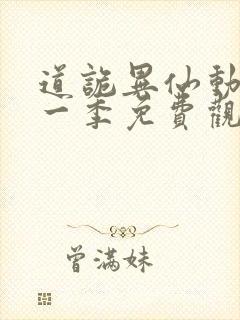 道詭異仙動
一季免費觀
曾满妹